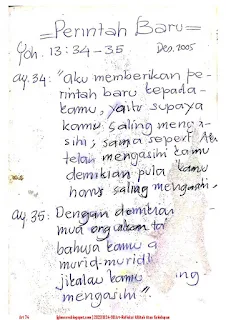 =Perintah Baru=
Yoh. 13:34-35 Des, 2005
ay. 34: "Aku memberikan pe-
rintah baru kepada-
kamu, yaitu supaya
kamu saling menga-
sihi; sama seperti Aku
telah mengasihi kamu
demikian pula kamu
harus saling mengasihi.
ay. 35: Dengan demikian
mua orang
bahwa kamu a
murid-murid
jikalau kamu ing
mengasihi".